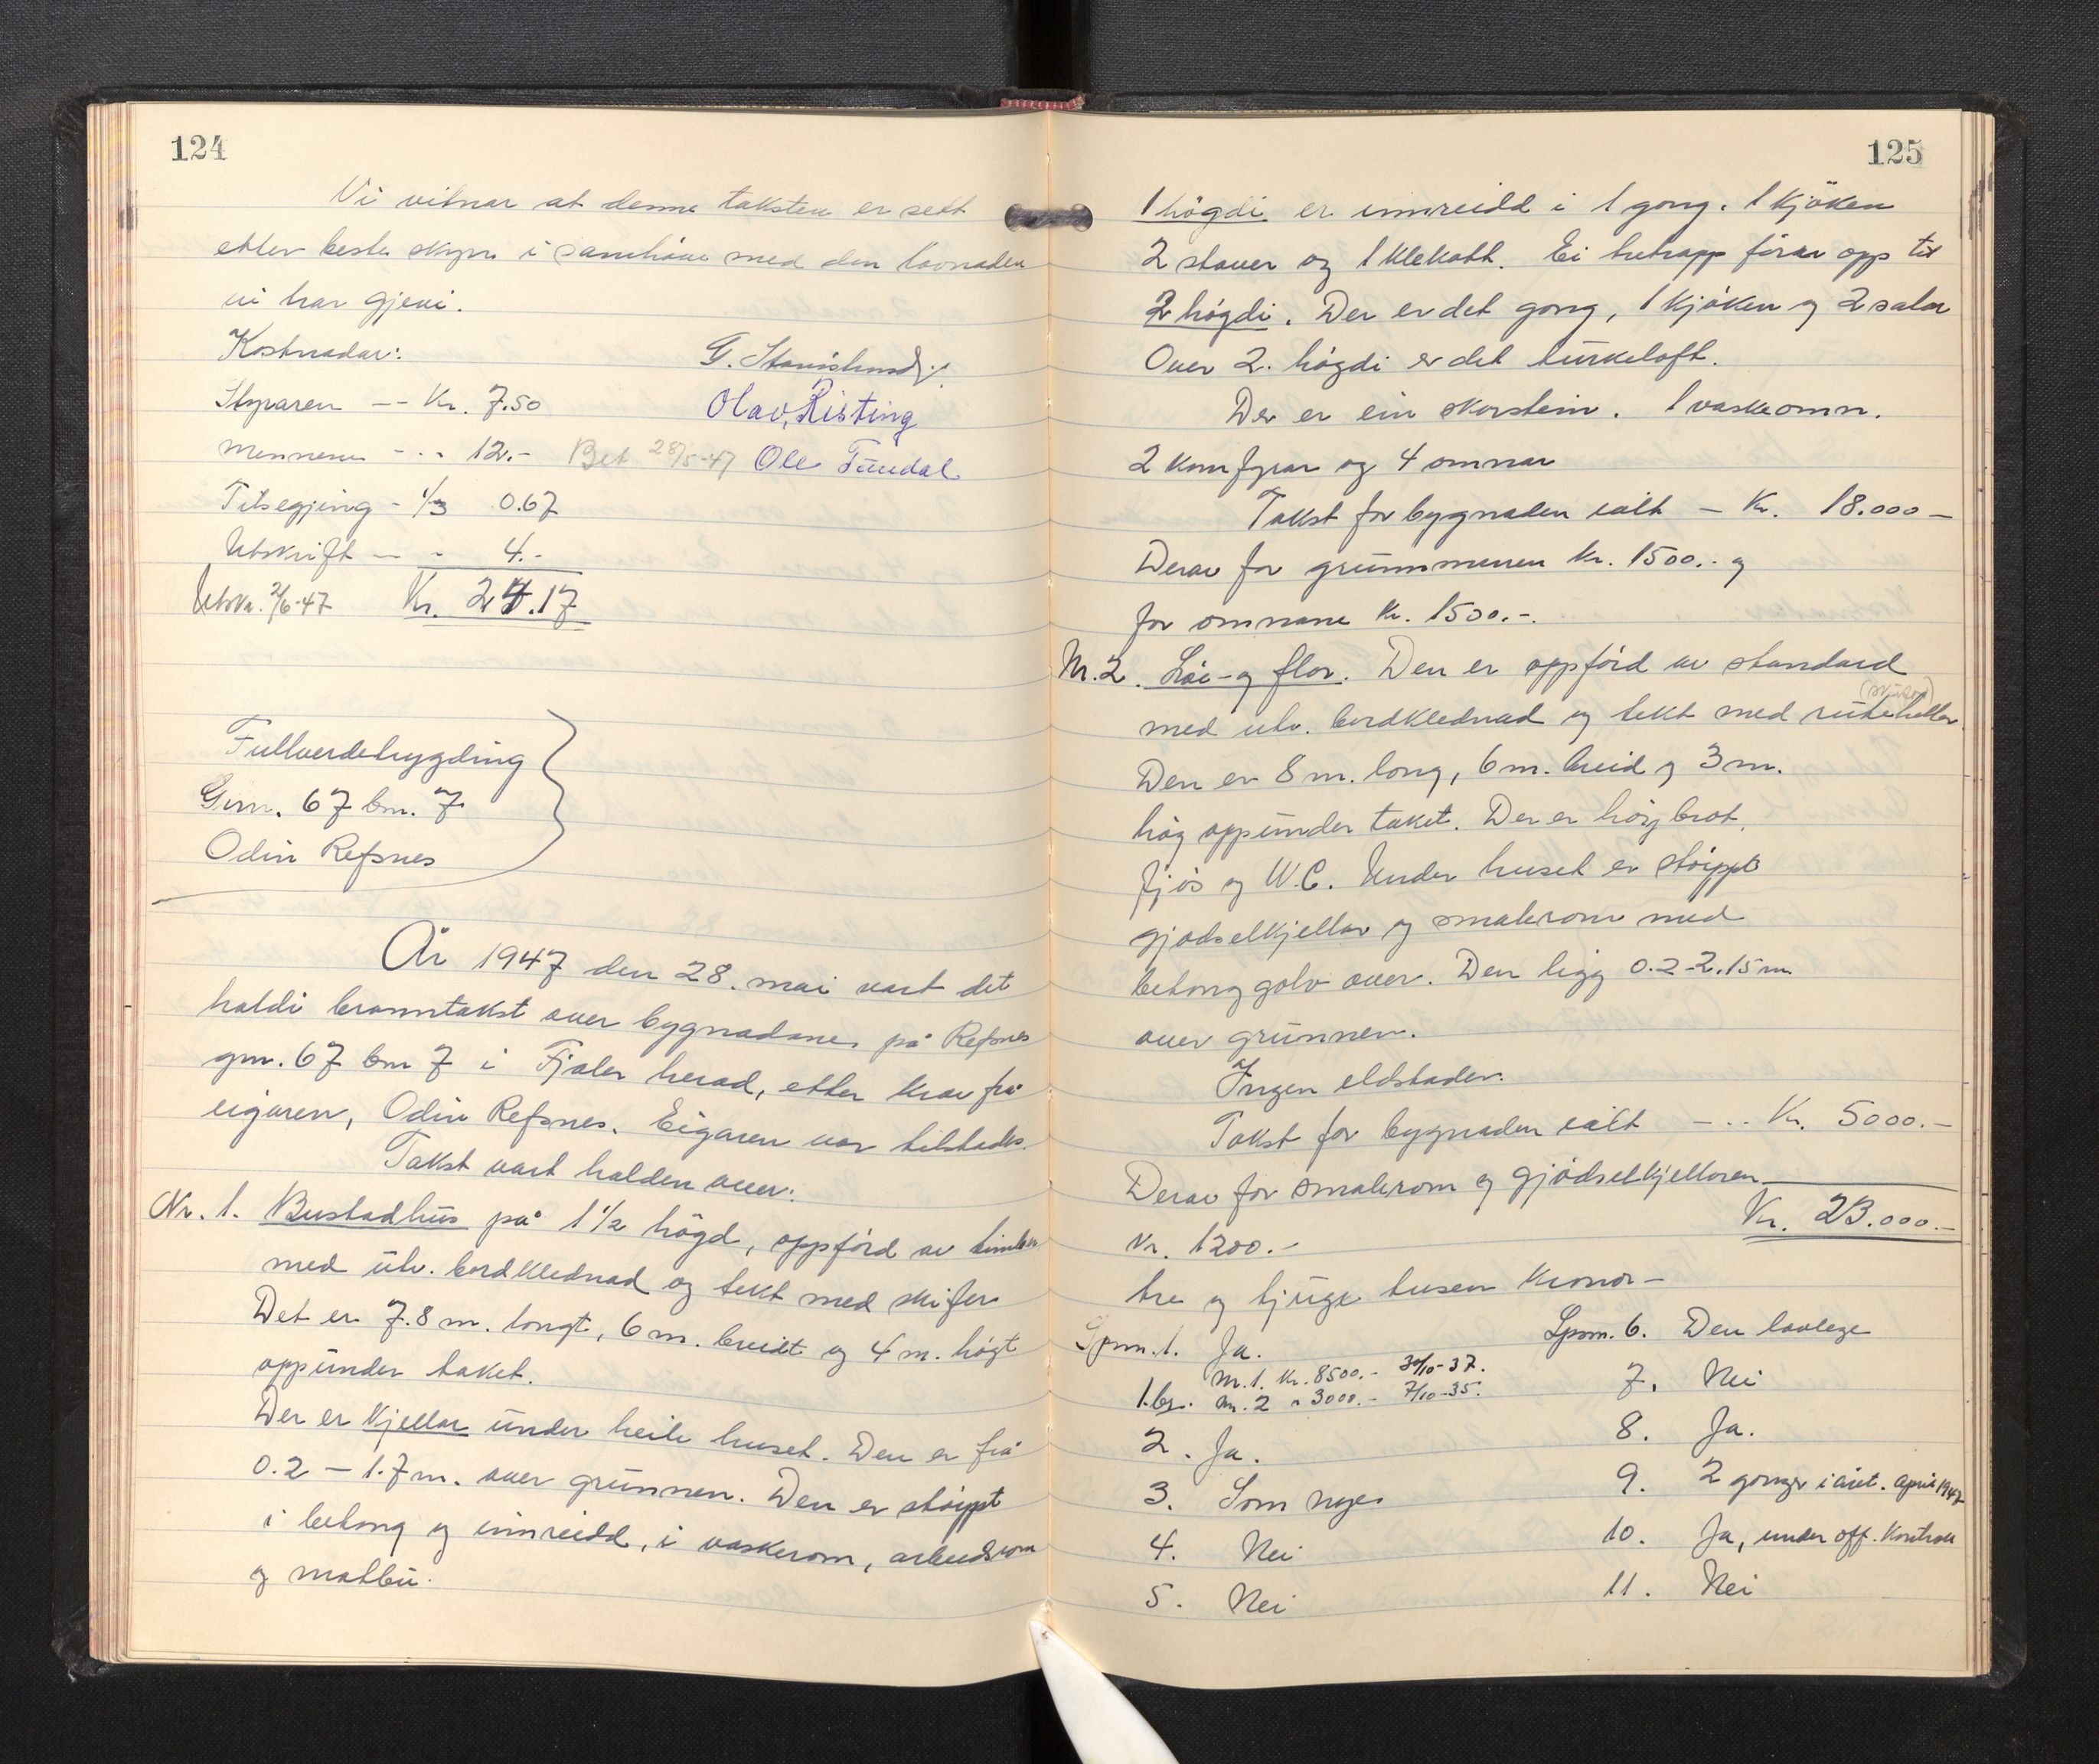 124
Vi vitnar at denne taksten er sett
etter beste skyn i samhøve med den lovnaden
vi har gjevi.
Kostnadar:
G. Standslund
Styraren -- Kr. 7.50
Olav Risting
Mennene - - - 12.- Bet 28/5-47
Ole Tundal
Tilsegjing - 1/3 0.67
Utskrift — - 4.-
Utskr. 2/6-47 Kr. 24.17
Fullverdetrygding
Gnr. 67 bnr. 7
Odin Refsnes
År 1947 den 28. mai vart det
haldi branntakst over bygnadane på Refsnes
gnr. 67 bnr 7 i Fjaler herad, etter krav frå
eigaren, Odin Refsnes. Eigaren var tilstades.
Takst vart halden over:
Nr. 1. Bustadhus på 1 1/2 högd, oppförd av timber
med utv. bordklednad og tekt med skifer
Det er 7.8 m. langt, 6 m. breidt og 4 m. högt
oppunder taket.
Der er kjellar under heile huset. Den er frå
0.2 — 1.7 m. over grunnen. Den er stöypt
i betong og innreidd, i vaskerom, arbeidsrom
og matbu.
125
1 högdi er innreidd i 1 gong. 1 kjöken
2 stover og 1 klekott. Ei tretrapp förer opp til
2 högdi. Der er det gong, 1 kjöken og 2 salar
Over 2. högdi er det turkeloft.
Der er ein skorstein. 1 vaskeomn.
2 komfyrar og 4 omnar
Takst for bygnaden ialt — Kr. 18.000 —
Derav for grunnmuren kr. 1500.- og
for omnane kr. 1500.-.
Nr. 2. Löe- og flor. Den er oppförd av standard
(skifer)
med utv. bordklednad og tekt med ruteheller
Den er 8 m. long, 6 m. breid og 3 m.
hög oppunder taket. Der er höybrot,
fjös og W.C. Under huset er stöypt
gjödselkjellar og smalerom med
betong golv over. Den ligg 0.2-2.15 m
over grunnen.
Ingen eldstader.
Takst for bygnaden ialt — .. Kr. 5000.—
Derav for smalerom og gjödselkjellaren
Kr. 23.000.—
kr. 1200.-
tre og tjuge tusen kronor —
Spm. 1. Ja.
Nr. 1. kr. 8500.- 30/10-37.
1.bg. Nr. 2 " 3000.- 7/10-35.
2. Ja.
3. Som nye
4. Nei
5. Nei
Spm. 6. Den lovlege
7. Nei
8. Ja.
9. 2 gonger i året. April 1947
10. Ja, under off. kontroll
11. Nei